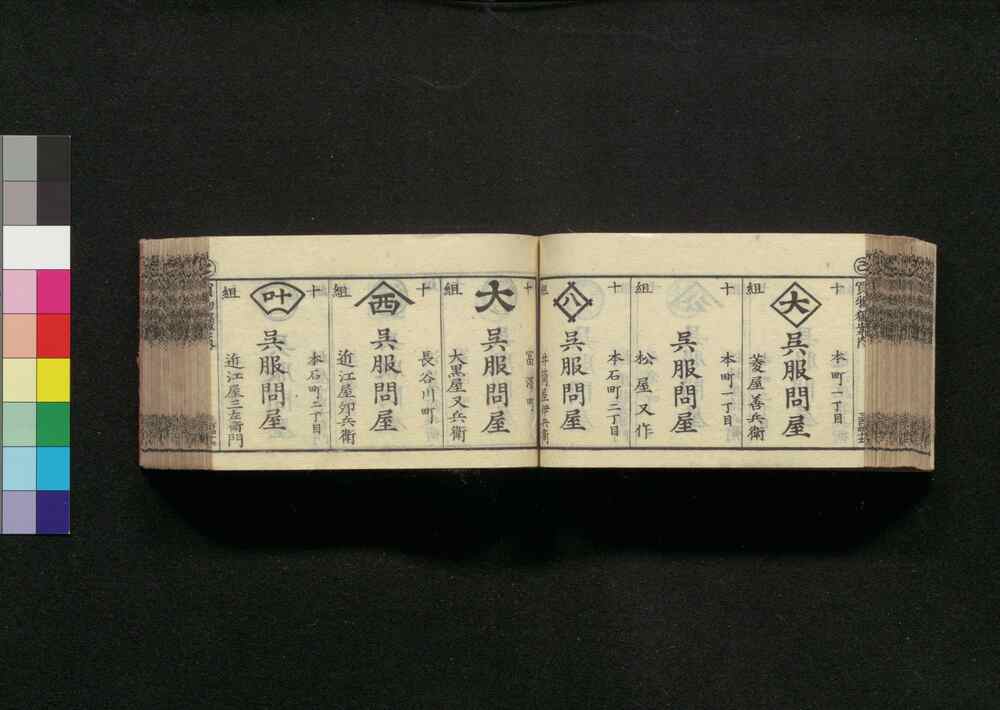 十組
大
本町一丁目
呉服問屋
菱屋善兵衛
十組
本町一丁目
呉服問屋
松屋又作
十組
八
本石町二丁目
呉服問屋
井筒屋伊兵衛
十組
大
富澤町
呉服問屋
大黒屋又兵衛
十組
西
長谷川町
呉服問屋
近江屋卯兵衛
十組
叶
本石町二丁目
呉服問屋
近江屋三左衛門